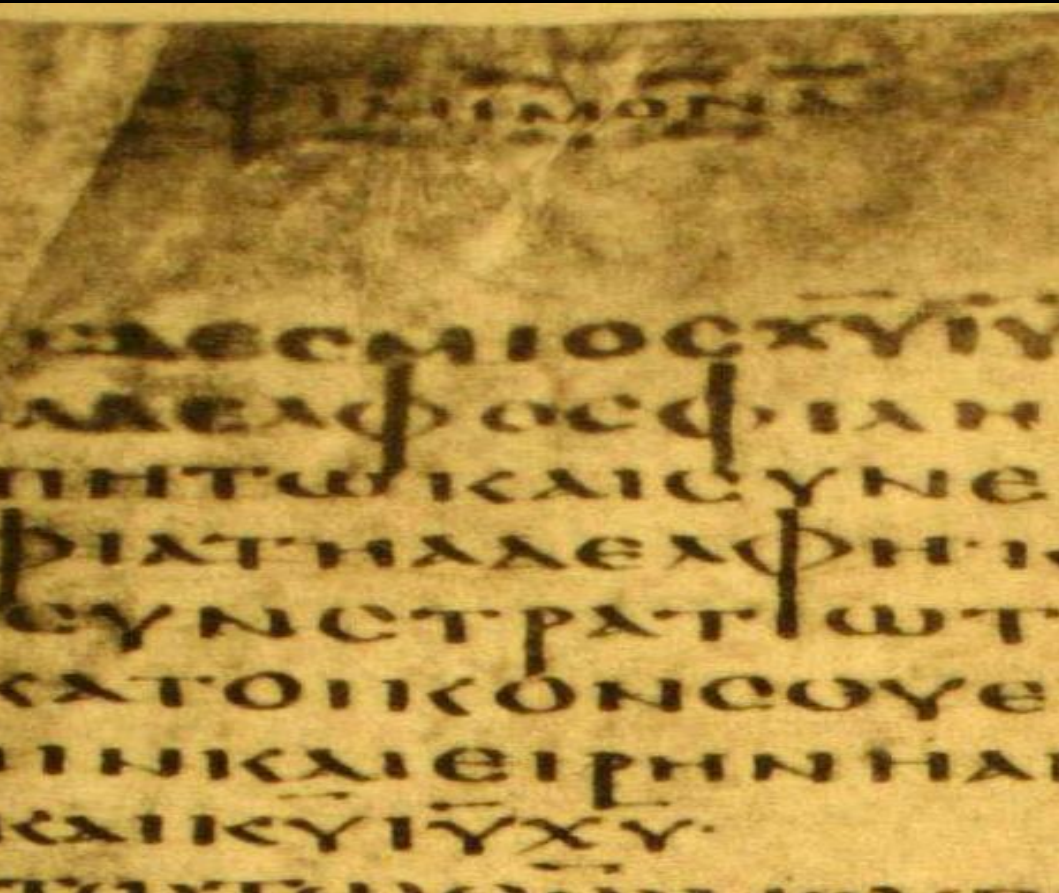 ΦΙΛΗΜΟΝΑ
ΔΕϹΜΙΟϹΧΥΙΥ
ΑΔΕΛΦΟϹΦΙΛΗ
ΠΗΤΩΚΑΙϹΥΝΕ
ΦΙΑΤΗΑΔΕΛΦΗΚ
ϹΥΝϹΤΡΑΤΙΩΤ
ΚΑΤΟΙΚΟΝϹΟΥΕ
ΙΝΚΑΙΕΙΡΗΝΗΑΠ
ΚΑΙΚΥΙΥΧΥ·